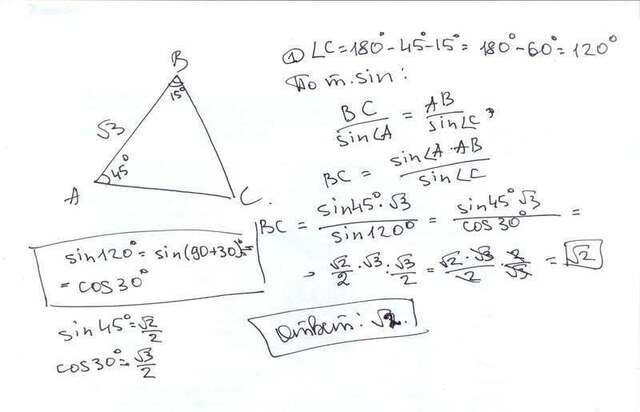 ① ∠C=180°-45°-15°=180°-60°=120°
По т.sin:
B
15°
√3
45°
A
C.
BC/sin∠A = AB/sin∠C,
BC = sin∠A·AB/sin∠C
BC = sin45°·√3/sin120° = sin45°√3/cos30° =
→ √2/2·√3:√3/2 = √2·√3/2·2/√3 = √2
sin120°=sin(90+30)°=
=cos30°
sin45°=√2/2
cos30°=√3/2
Ответ: √2.